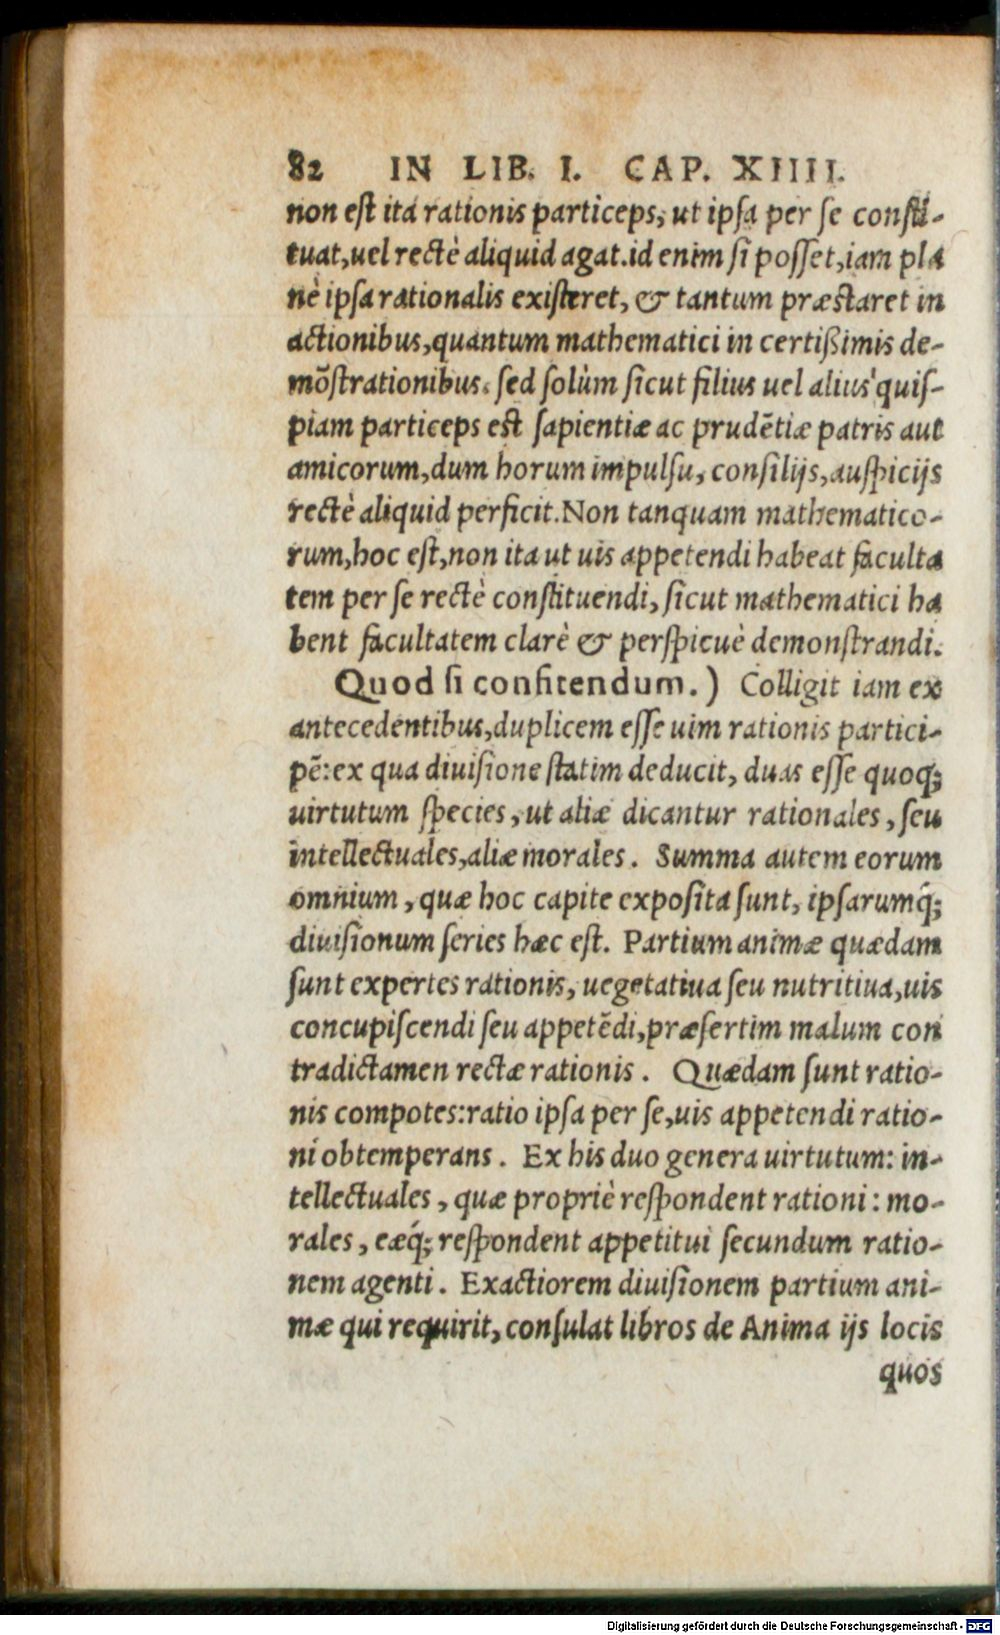 82 IN LIB. I. CAP. XIIII.
non eſt ita rationis particeps, ut ipſa per ſe conſti-
tuat,uel rectè aliquid agat.id enim ſi poſſet,iam pla
nè ipſa rationalis exiſteret, & tantum præſtaret in
actionibus,quantum mathematici in certißimis de-
mõſtrationibus. ſed ſolùm ſicut filius uel alius quiſ-
piam particeps eſt ſapientiæ ac prudẽtiæ patris aut
amicorum,dum horum impulſu, conſilijs,auſpicijs
rectè aliquid perficit.Non tanquam mathematico-
rum,hoc eſt,non ita ut uis appetendi habeat faculta
tem per ſe rectè conſtituendi, ſicut mathematici ha
bent facultatem clarè & perſpicuè demonſtrandi.
Quod ſi confitendum.) Colligit iam ex
antecedentibus,duplicem eſſe uim rationis partici-
pẽ:ex qua diuiſione ſtatim deducit, duas eſſe quoq;
uirtutum ſpecies, ut aliæ dicantur rationales, ſeu
intellectuales,aliæ morales. Summa autem eorum
omnium, quæ hoc capite expoſita ſunt, ipſarumq́;
diuiſionum ſeries hæc eſt. Partium animæ quædam
ſunt expertes rationis, uegetatiua ſeu nutritiua,uis
concupiſcendi ſeu appetẽdi,præſertim malum con
tra dictamen rectæ rationis. Quædam ſunt ratio-
nis compotes:ratio ipſa per ſe,uis appetendi ratio-
ni obtemperans. Ex his duo genera uirtutum: in-
tellectuales, quæ propriè reſpondent rationi: mo-
rales, eæq́; reſpondent appetitui ſecundum ratio-
nem agenti. Exactiorem diuiſionem partium ani-
mæ qui requirit, conſulat libros de Anima ijs locis
quos
Digitalisierung gefördert durch die Deutsche Forschungsgemeinschaft - DFG